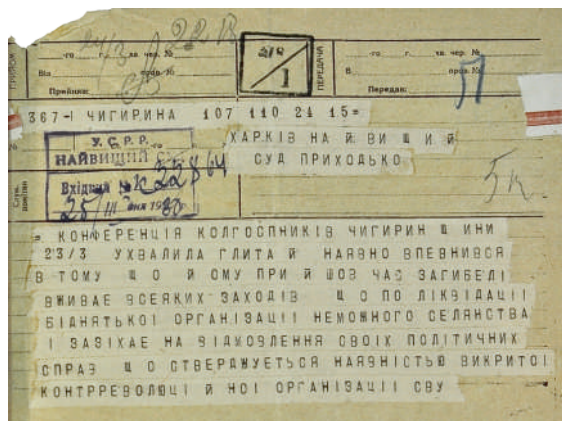 24/3 22 18
-го г. хв. чер. №
-го г. хв. чер. №
Від пров. №
В. пров. №
Прийняв:
Передав:
ПЕРЕДАЧА
2/8
1
367-І ЧИГИРИНА 107 110 24 15=
ХАРКІВ НА Й ВИ Щ И Й
СУД ПРИХОДЬКО
У. С. Р. Р.
НАЙВИЩИЙ
Вхідний №
25/III дня 1930
5к.
= КОНФЕРЕНЦІЯ КОЛГОСПНИКІВ ЧИГИРИН Щ ИНИ
23/3 УХВАЛИЛА ГЛИТА Й НАЯВНО ВПЕВНИВСЯ
В ТОМУ Щ О Й ОМУ ПРИ Й ШОВ ЧАС ЗАГИБЕЛІ
ВЖИВАЕ ВСЕЯКИХ ЗАХОДІВ Щ О ПО ЛІКВІДАЦІІ
БІДНЯТЬКОІ ОРГАНІЗАЦІІ НЕМОЖНОГО СЕЛЯНСТВА
І ЗАЗІХАЕ НА ВІДМОВЛЕННЯ СВОІХ ПОЛІТИЧНИХ
СПРАВ Щ О СТВЕРДЖУЕТЬСЯ НАЯВНІСТЬЮ ВИКРИТОІ
КОНТРРЕВОЛЮЦІ Й НОІ ОРГАНІЗАЦІІ СВУ